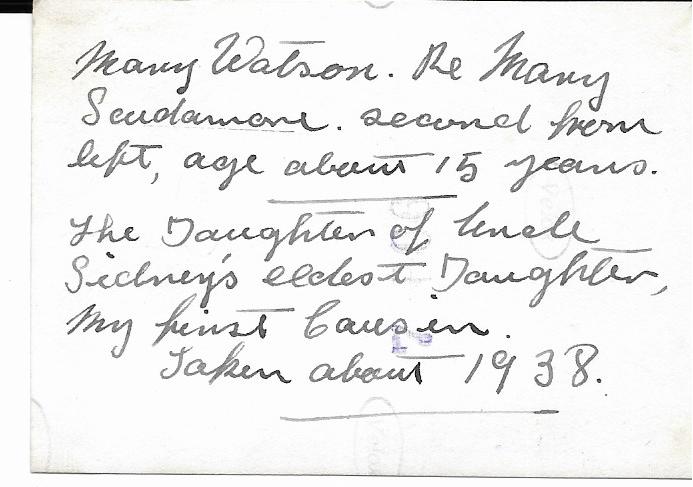 Mary Watson. Re Mary
Scudamore. second from
left, age about 15 years.
The Daughter of Uncle
Sidney's eldest Daughter,
My first Cousin.
Taken about 1938.